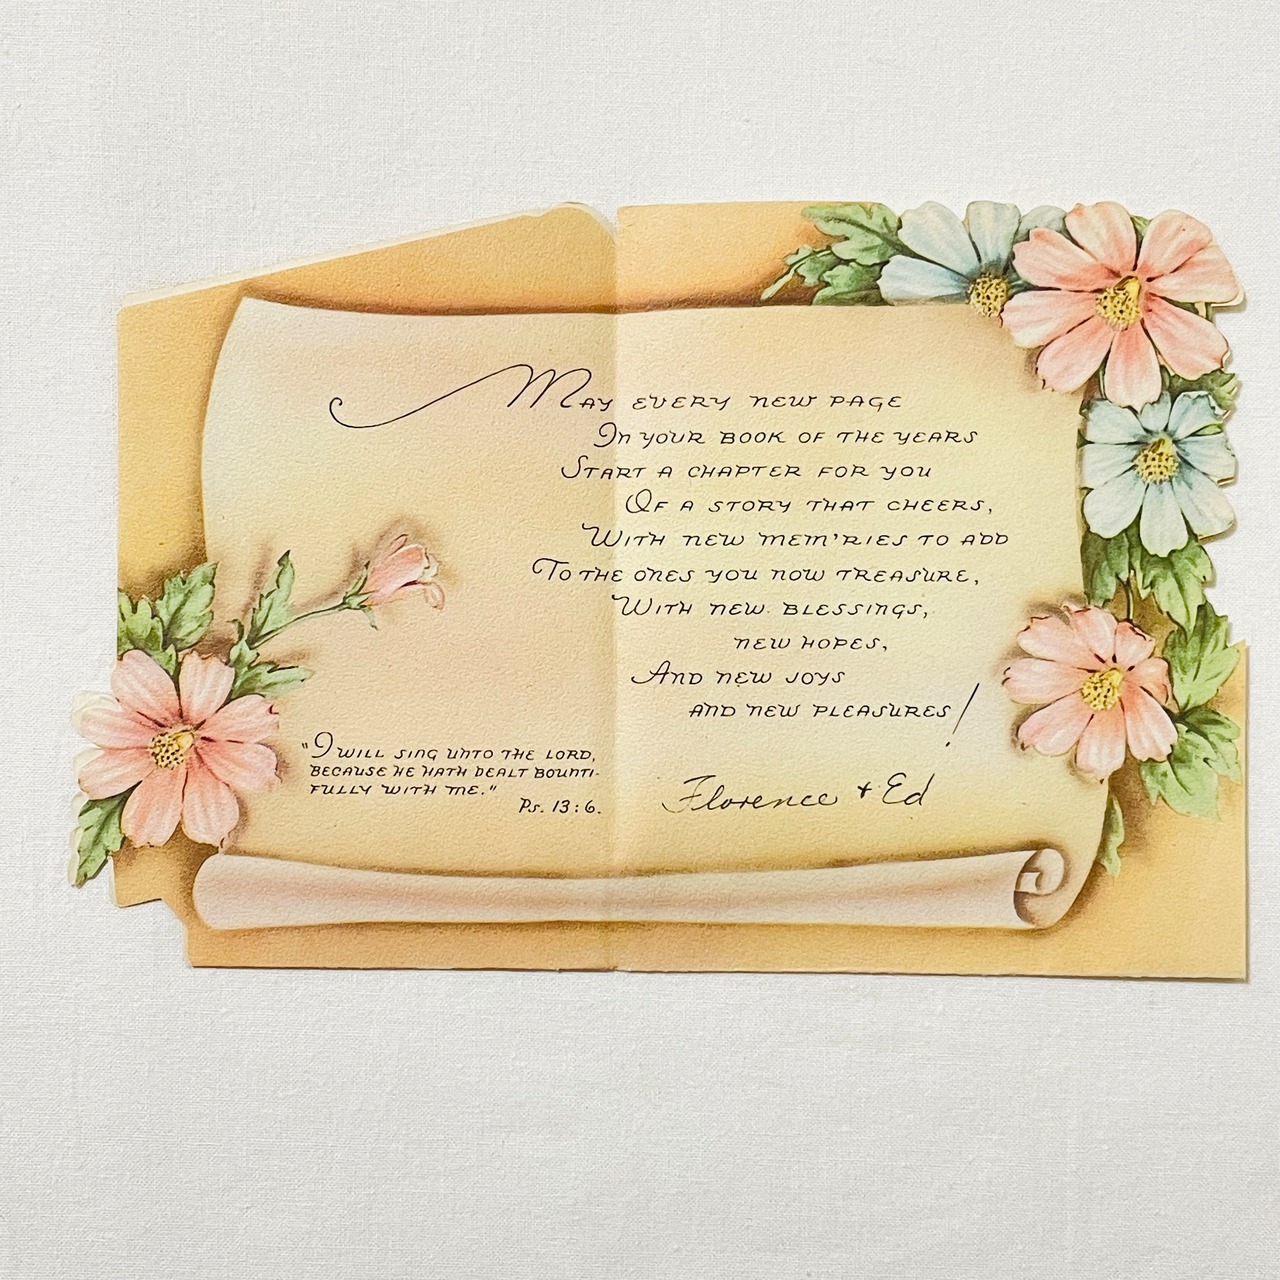 May every new page
In your book of the years
Start a chapter for you
Of a story that cheers,
With new mem'ries to add
To the ones you now treasure,
With new blessings,
new hopes,
And new joys
and new pleasures!
"I will sing unto the Lord,
because he hath dealt bounti-
fully with me."
Ps. 13:6.
Florence + Ed